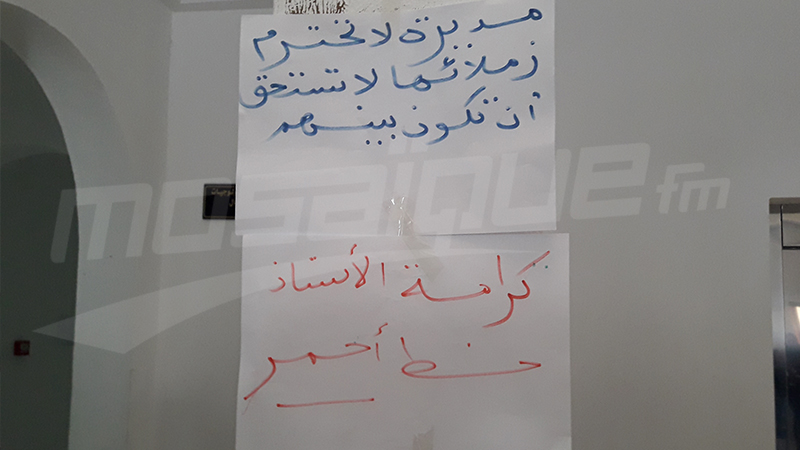 مديرة لا تحترم
زملائها لا تستحق
أن تكون بينهم
كرامة الأستاذ
خط أحمر
mosaique fm